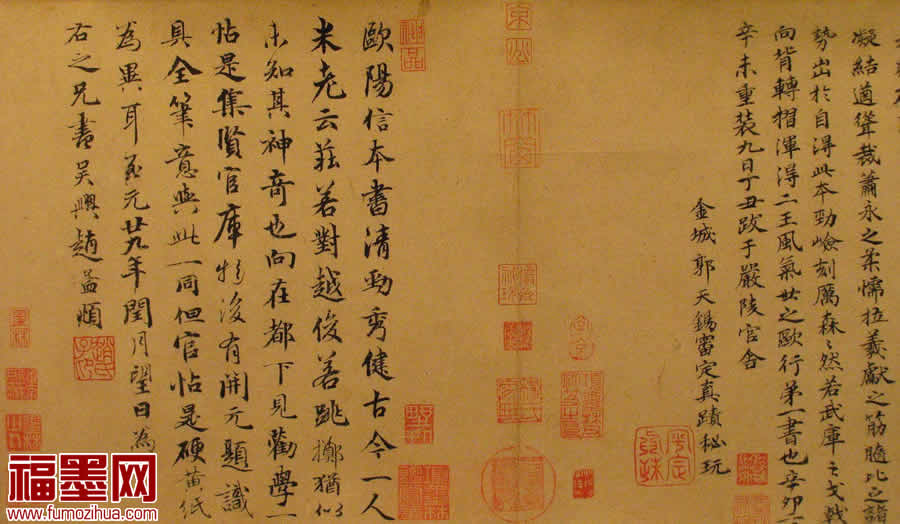 凝結遒聳裁蕭永之柔懦拉羲獻之筋髓比之諸
勢出於自得此本勁嶮刻厲森〻然若武庫之戈戟
向背轉摺渾得二王風氣世之歐行第一書也辛卯
辛未重裝九日丁丑跋于嚴陵官舍
金城郭天錫審定真蹟秘玩
歐陽信本書清勁秀健古今一人
米老云莊若對越俊若跳擲猶似
未知其神奇也向在都下見勸學一
帖是集賢官庫物後有開元題識
具全筆意與此一同但官帖是硬黃紙
為異耳至元廿九年閏月望日為
右之兄書吳興趙孟頫
神品
福墨网
www.fumozihua.com